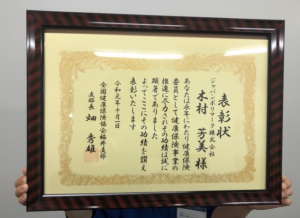 表彰状
ジャパンポリマーク株式会社
木村 芳美 様
あなたは永年にわたり健康保険
委員として健康保険事業の
推進に尽力されその功績は誠に
顕著でありました
よってここにその功績を讃え
表彰いたします
令和元年十月一日
全国健康保険協会福井支部
支部長 畑 秀雄